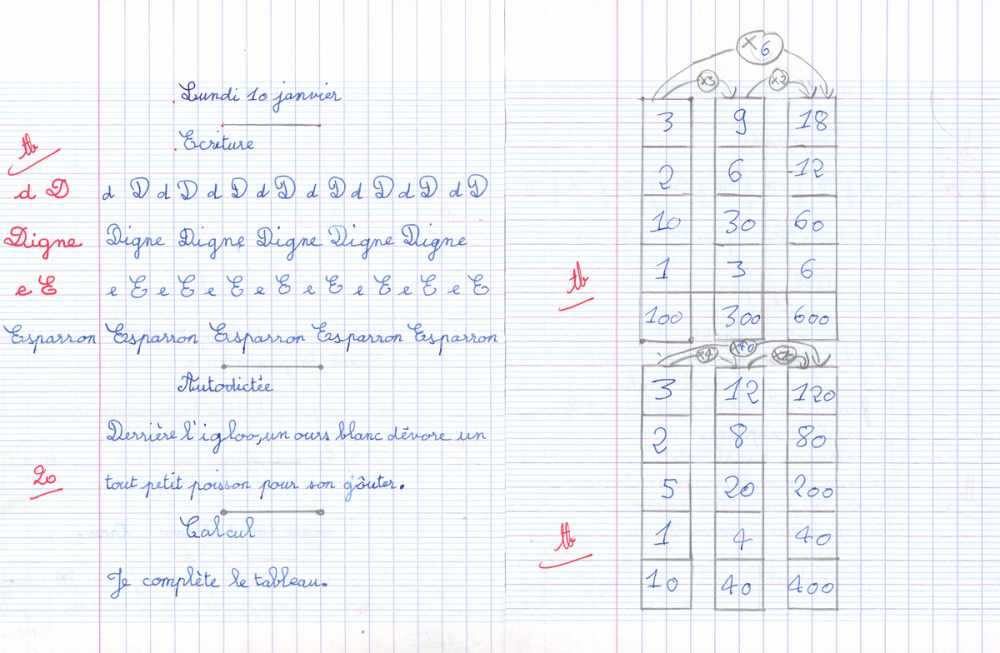 Lundi 10 janvier
Ecriture
tb
d D d D d D d D d D d D d D d D d D
Digne Digne Digne Digne Digne Digne
e E e E e E e E e E e E e E e E e E
Esparron Esparron Esparron Esparron Esparron
Autodictée
Derrière l'igloo, un ours blanc dévore un
20 tout petit poisson pour son goûter.
Calcul
Je complète le tableau.
x6
x3 x2
3 9 18
2 6 12
10 30 60
1 3 6
tb
100 300 600
x40
x4 x10
3 12 120
2 8 80
5 20 200
tb 1 4 40
10 40 400